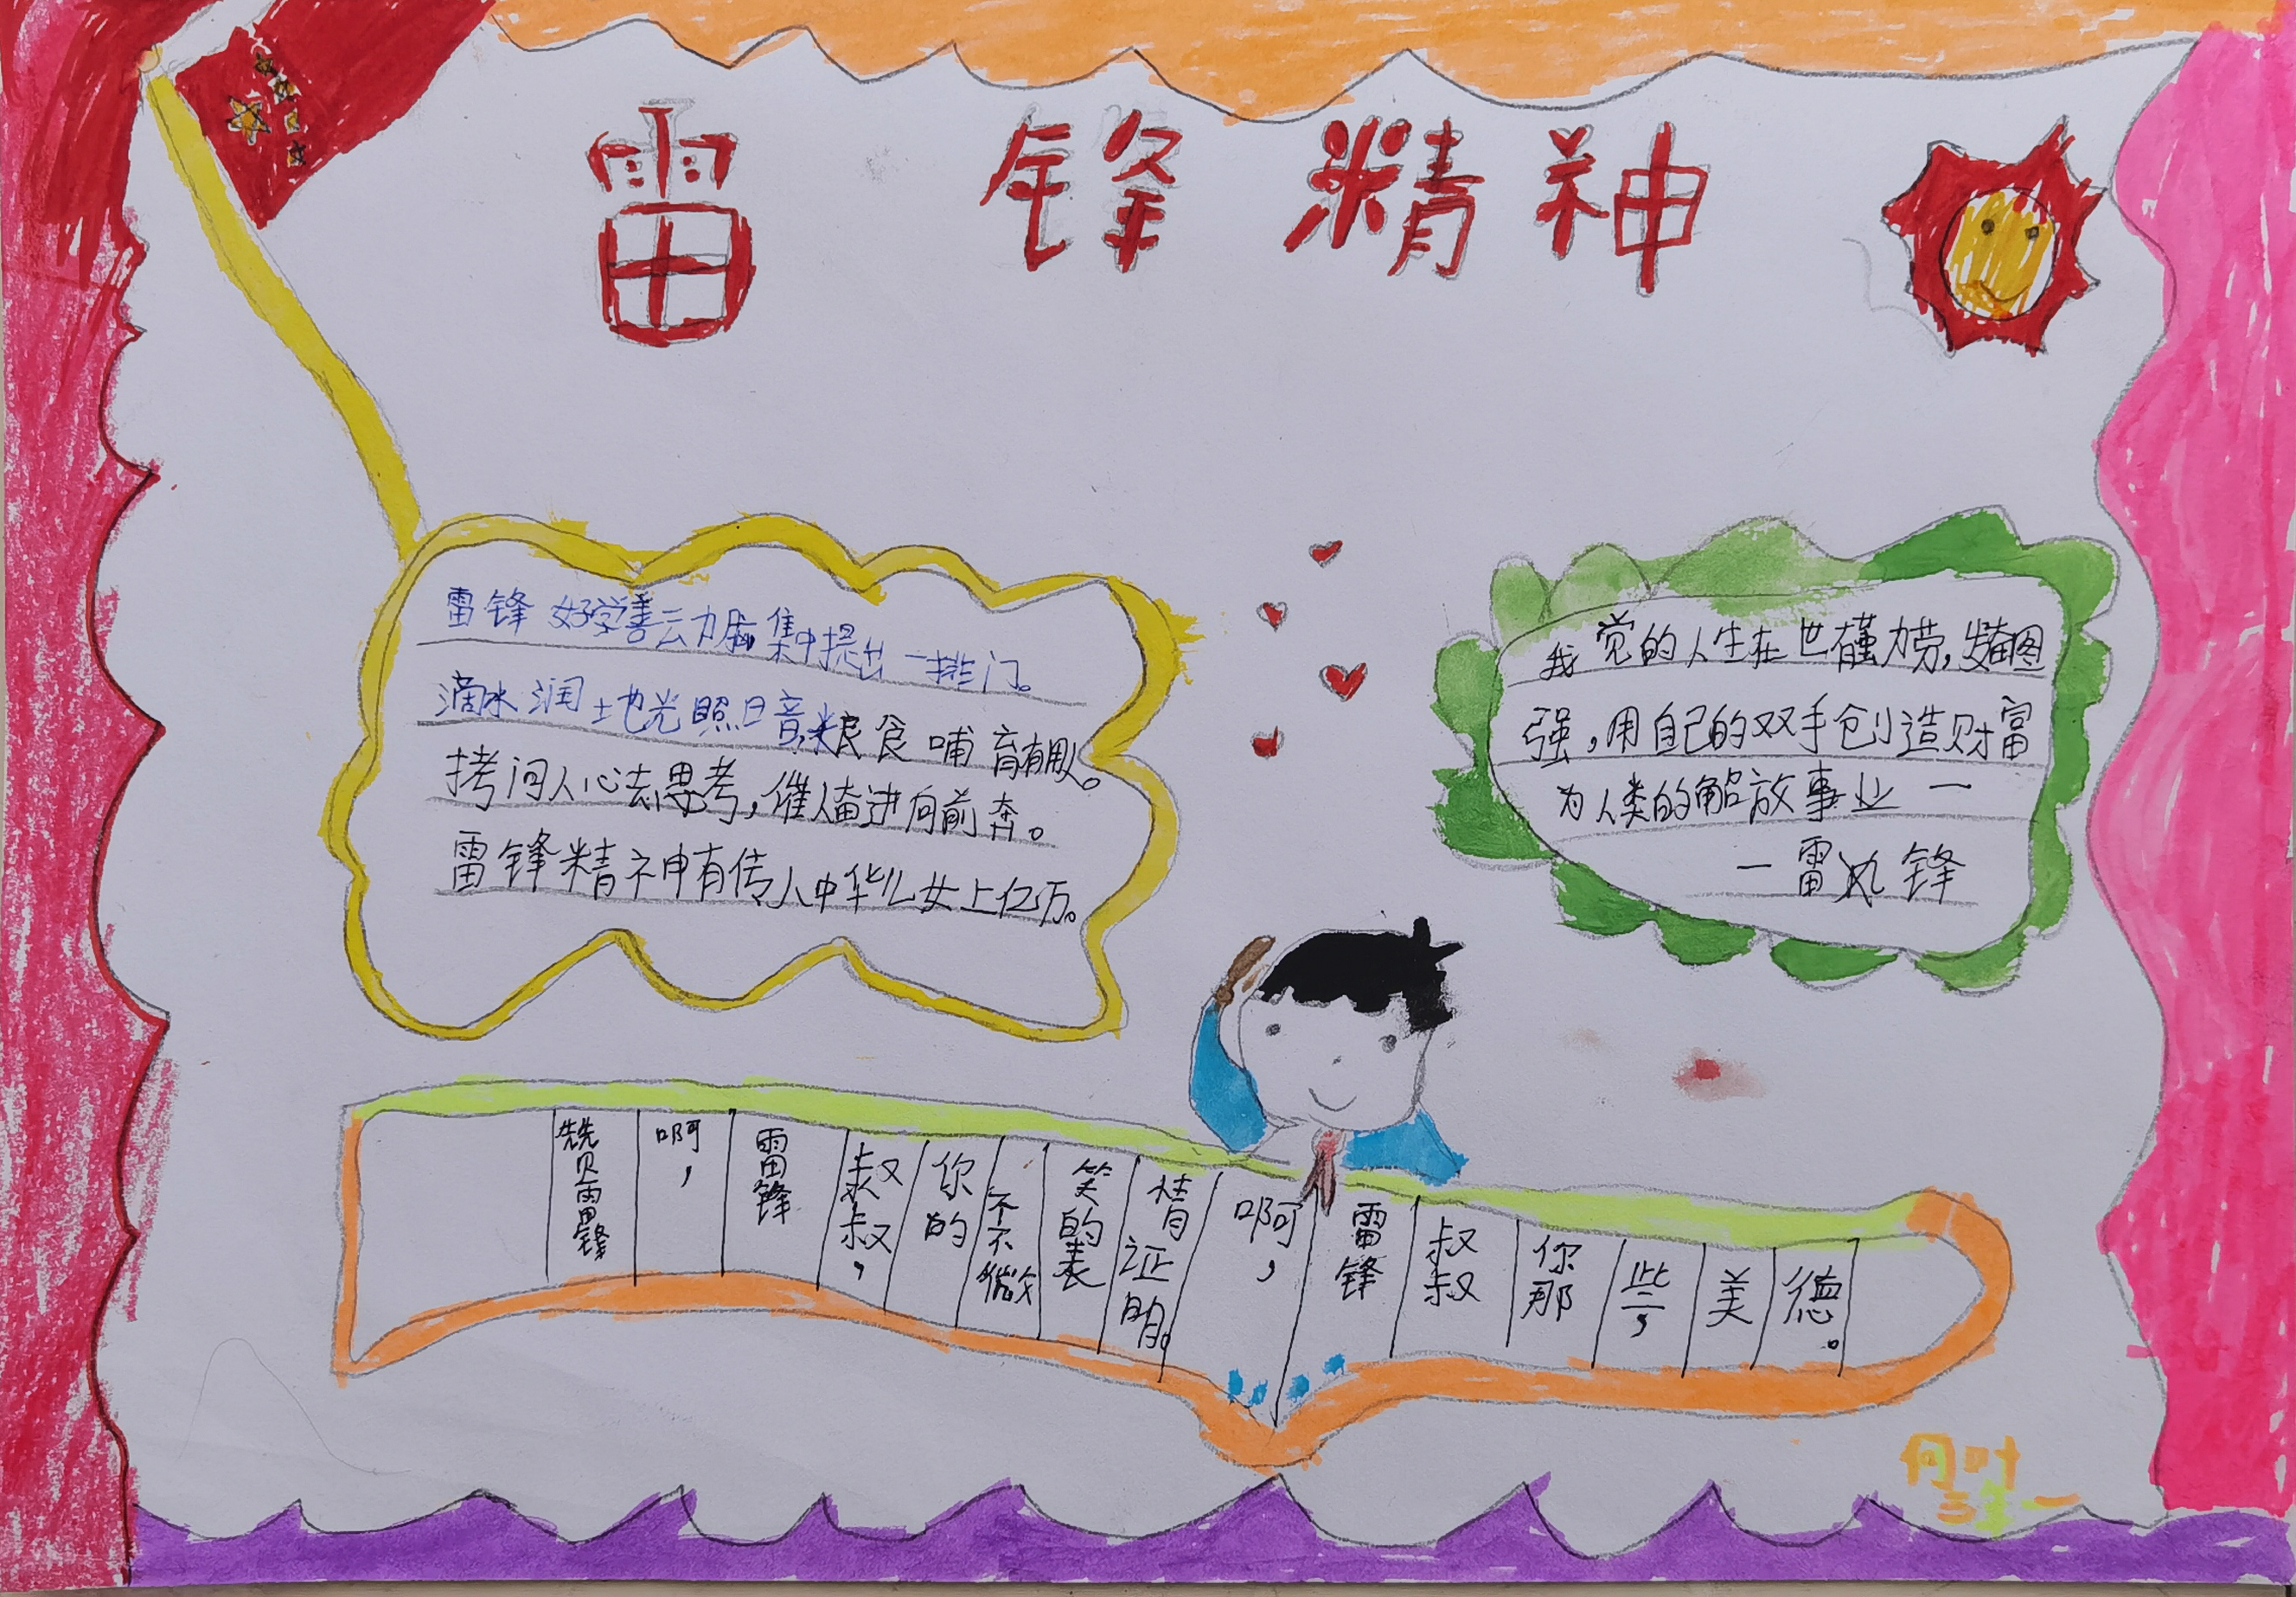 雷锋精神
雷锋好学善云力脑集中提出一排门。
滴水润土地光照日音,粮食哺育有用人。
拷问人心去思考,催人奋进向前奔。
雷锋精神有传人中华儿女上亿万。
我觉的人生在世有勤劳,发奋图
强,用自己的双手创造财富
为人类的解放事业一
一雷锋
赞雷锋
啊,
雷锋
叔叔,
你的
不不微
笑的表
情证明。
啊,
雷锋
叔叔
你那
些,
美
德。